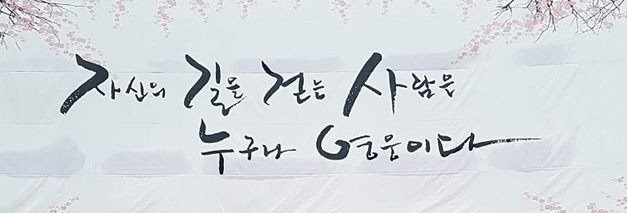 자신의 길을 걷는 사람은
누구나 영웅이다